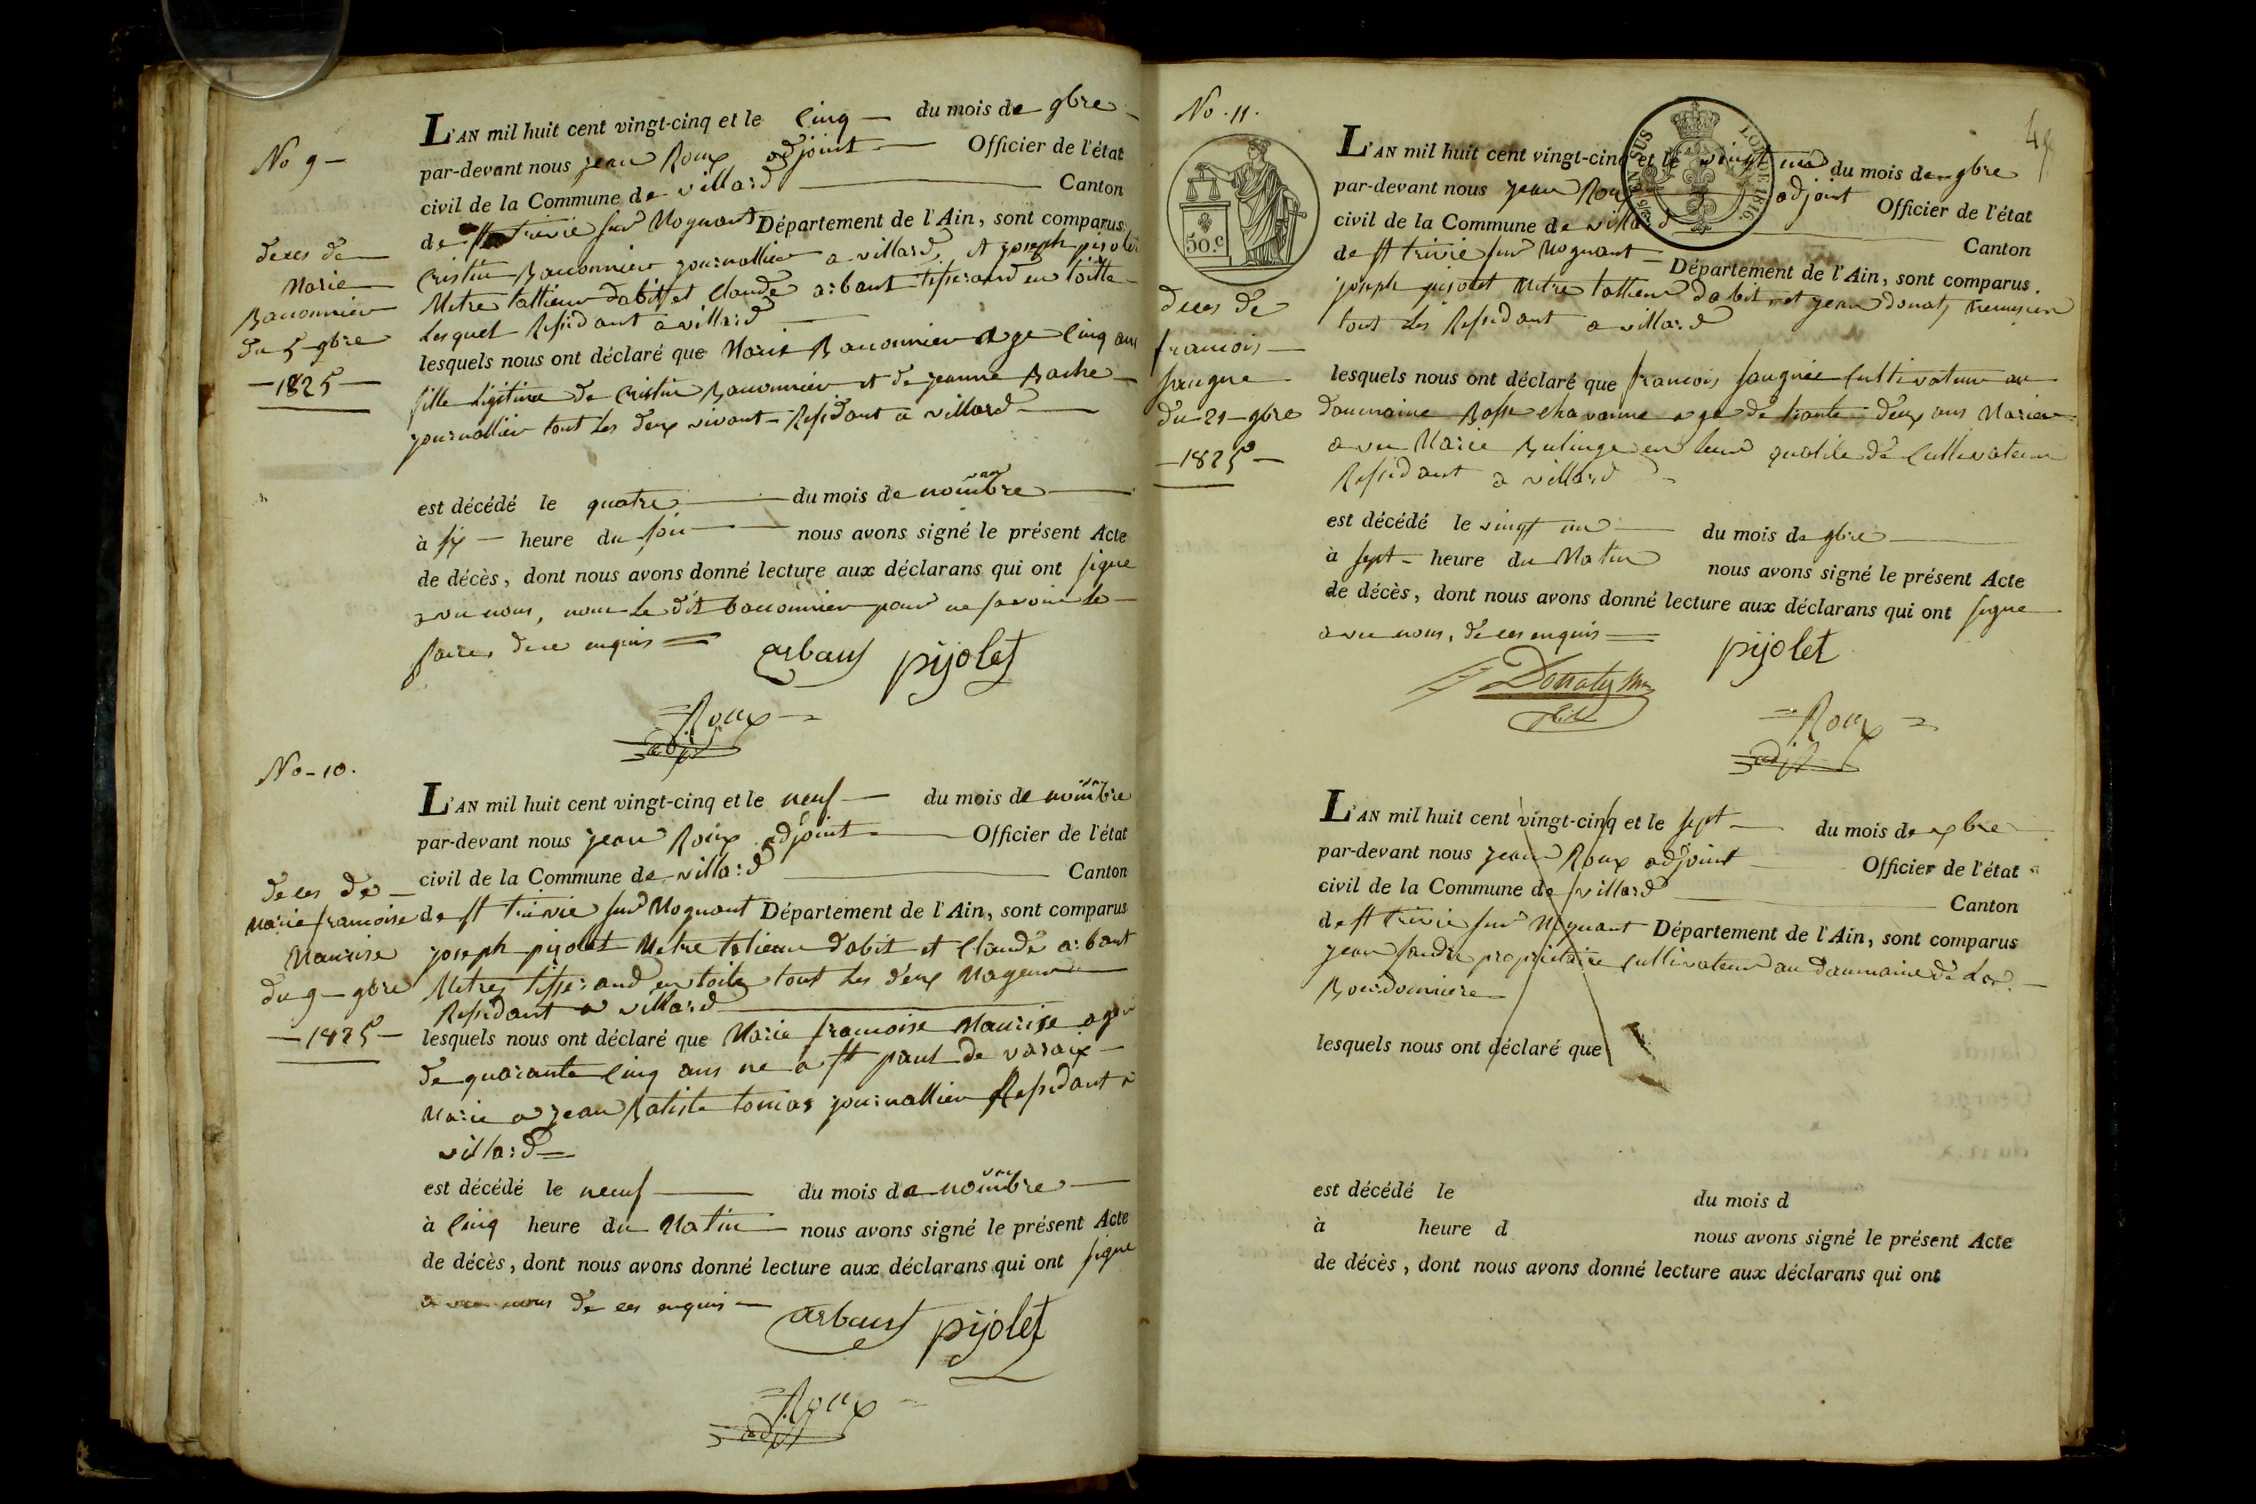 No 9 —
L'AN mil huit cent vingt-cinq et le cinq — du mois de 9bre
par-devant nous jean Roux adjoint — Officier de l'état
civil de la Commune de villard — Canton
de st trivie sur Mognant Département de l'Ain, sont comparus
Cristin Bauonnier journallier a villard, et joseph pijolet
Metre tallieur dabit et Claude arbant tisserand en toille
lesquel Residant a villard
lesquels nous ont déclaré que Marie Bauonnier age cinq ans
fille légitime de Cristin Bauonnier et de jeanne Bache
journallier tout les deux vivant Residant a villard
deces de
Marie
Bauonnier
du 5 9bre
— 1825 —
est décédé le quatre — du mois de novembre
à six — heure du soir — nous avons signé le présent Acte
de décès, dont nous avons donné lecture aux déclarans qui ont signe
avec nous, non le dit bauonnier pour ne savoir le
faire, de ce enquis =
arbant pijolet
= Roux =
adjt
No - 10.
L'AN mil huit cent vingt-cinq et le neuf — du mois de novembre
par-devant nous jean Roux adjoint — Officier de l'état
civil de la Commune de villard — Canton
de st trivie sur Mognant Département de l'Ain, sont comparus
joseph pijolet Metre talieur dabit et Claude arbant
Metre tisserand en toile tout les deux Mageur
Residant a villard
lesquels nous ont déclaré que Marie francoise Maurise age
de quarante cinq ans ne a st paul de varaix
Marie a jean Batiste tomas journallier Residant a
villard
deces de
Marie francoise
Maurise
du 9 — 9bre
— 1825 —
est décédé le neuf — du mois de novembre
à cinq heure du Matin — nous avons signé le présent Acte
de décès, dont nous avons donné lecture aux déclarans qui ont signe
avec nous de ces enquis —
arbant pijolet
= Roux =
adjt
No . 11.
50.c
EN SUS
LOI DE 1816.
L'AN mil huit cent vingt-cinq et le vingt un du mois de 9bre
par-devant nous jean Roux adjoint Officier de l'état
civil de la Commune de villard Canton
de st trivie sur Mognant — Département de l'Ain, sont comparus
joseph pijolet Metre tallieur dabit et jean donat,
tout les Residant a villard
lesquels nous ont déclaré que francois saugnie Cultivateur au
doumaine Basse chavanne age de trante deux ans Marier
avec Marie Bulinge en leur qualite de Cultivateur
Residant a villard
deces de
francois
saugne
du 21 9bre
— 1825 —
est décédé le vingt un — du mois de 9bre
à sept — heure du Matin nous avons signé le présent Acte
de décès, dont nous avons donné lecture aux déclarans qui ont signe
avec nous, de ces enquis =
pijolet
Donat
= Roux =
adjt
L'AN mil huit cent vingt-cinq et le sept — du mois de xbre
par-devant nous jean Roux adjoint — Officier de l'état
civil de la Commune de villard — Canton
de st trivie sur Mognant Département de l'Ain, sont comparus
jean propriétaire cultivateur au doumaine de la
Bourdonniere
lesquels nous ont déclaré que
est décédé le du mois d
à heure d nous avons signé le présent Acte
de décès, dont nous avons donné lecture aux déclarans qui ont